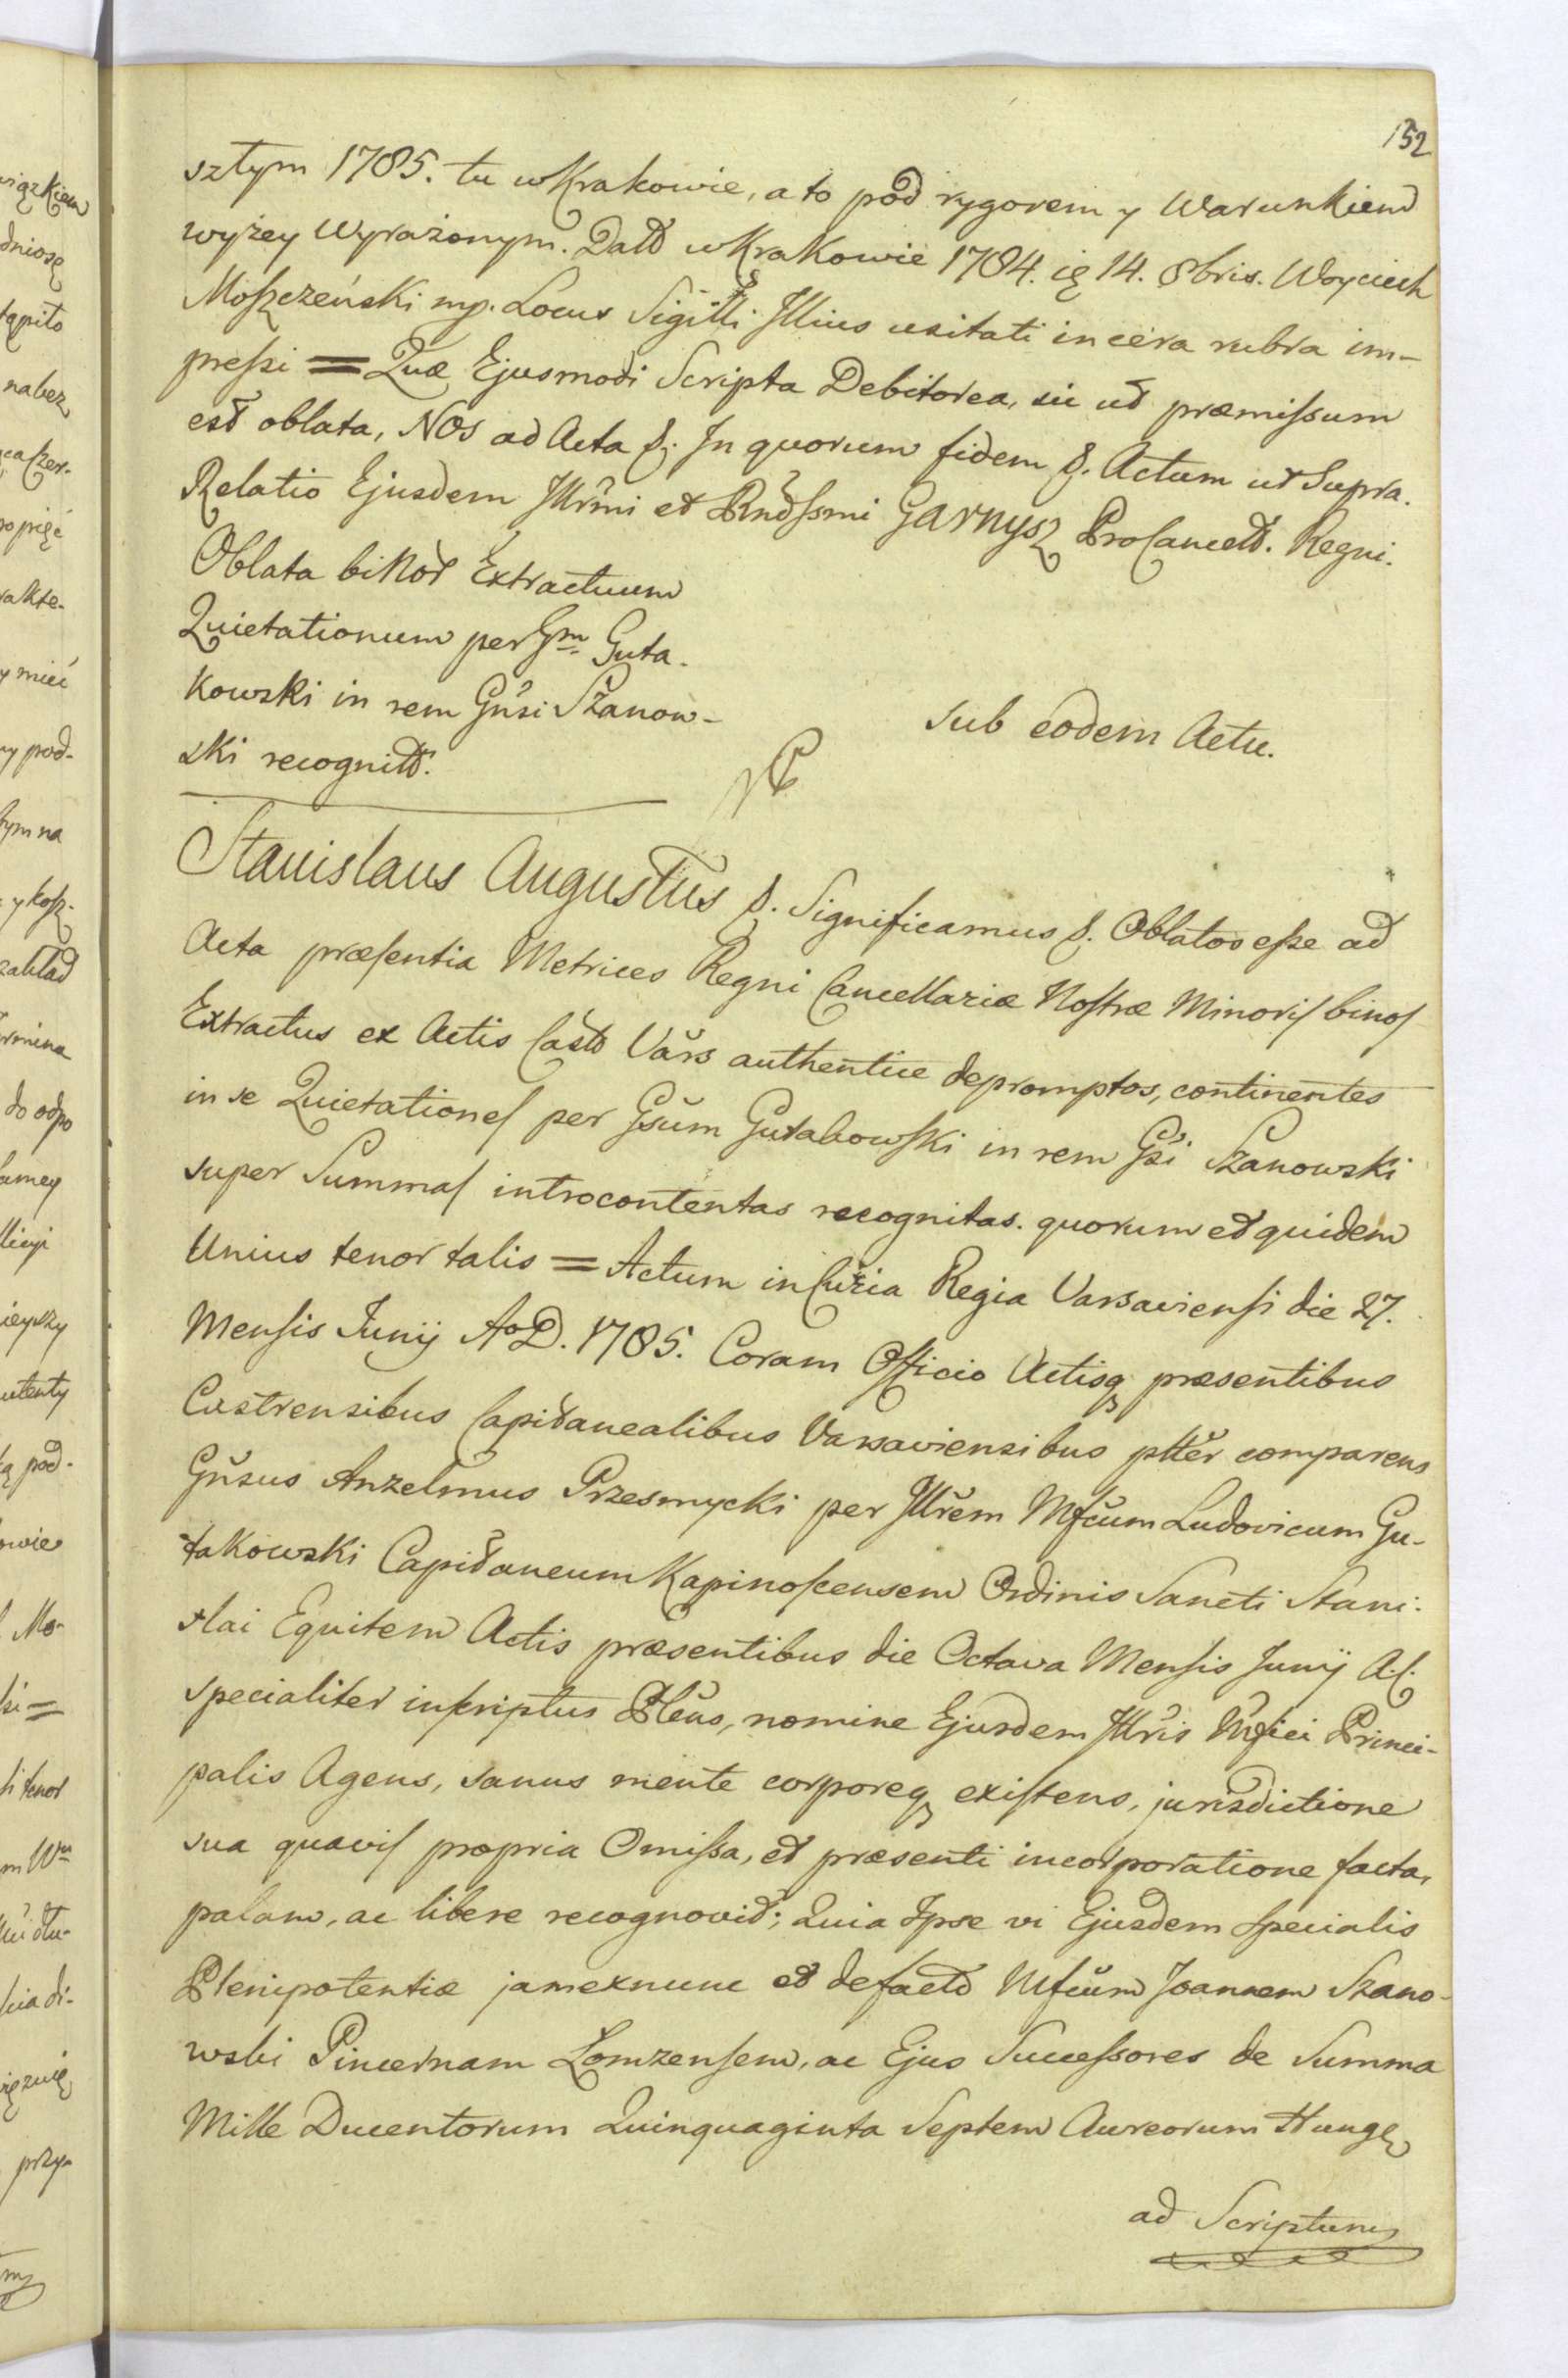 152
sztym 1785. tu w Krakowie, a to pod rygorem y Warunkiem
wyżey Wyrażonym. Datt w Krakowie 1784. ię 14. 8bris. Woyciech
Moszczeński mp. Locus Sigilli Illius usitati in cera rubra im-
pressi = Quæ Ejusmodi Scripta Debitorea, sic ut præmissum
est oblata, Nos ad Acta &. In quorum fidem &. Actum ut Supra.
Relatio Ejusdem Illrmi et Rndssmi Garnysz ProCancell. Regni.
Oblata binor Extractuum
Quietationum per Gm Guta-
kowski in rem Gnsi Szanow-
ski recognitt.
sub eodem Actu.
Stanislaus Augustus &. Significamus &. Oblatos esse ad
Acta præsentia Metrices Regni Cancellariæ Nostræ Minoris binos
Extractus ex Actis Castr Vars authentice depromptos, continentes
in se Quietationes per Gsum Gutakowski in rem Gsi Szanowski
super Summas introcontentas recognitas. quorum et quidem
Unius tenor talis = Actum in Curia Regia Varsaviensi die 27.
Mensis Junij A.D. 1785. Coram Officio Actisq præsentibus
Castrensibus Capitanealibus Varsaviensibus ptter comparens
Gnsus Anzelmus Przesmycki per Illrem Mfcum Ludovicum Gu-
takowski Capitaneum Kapinoscensem Ordinis Sancti Stani-
slai Equitem Actis præsentibus die Octava Mensis Junij A.C.
specialiter inscriptus Plens, nomine Ejusdem Illris Mfici Princi-
palis Agens, sanus mente corporeq existens, jurisdictione
sua quavis propria Omissa, et præsenti incorporatione facta,
palam, ac libere recognovit; Quia Ipse vi Ejusdem specialis
Plenipotentiæ jamexnunc et defacto Mfcum Joannem Szano-
wski Pincernam Łomzensem, ac Ejus Successores de Summa
Mille Ducentorum Quinquaginta Septem Aureorum Hung
ad Scriptum